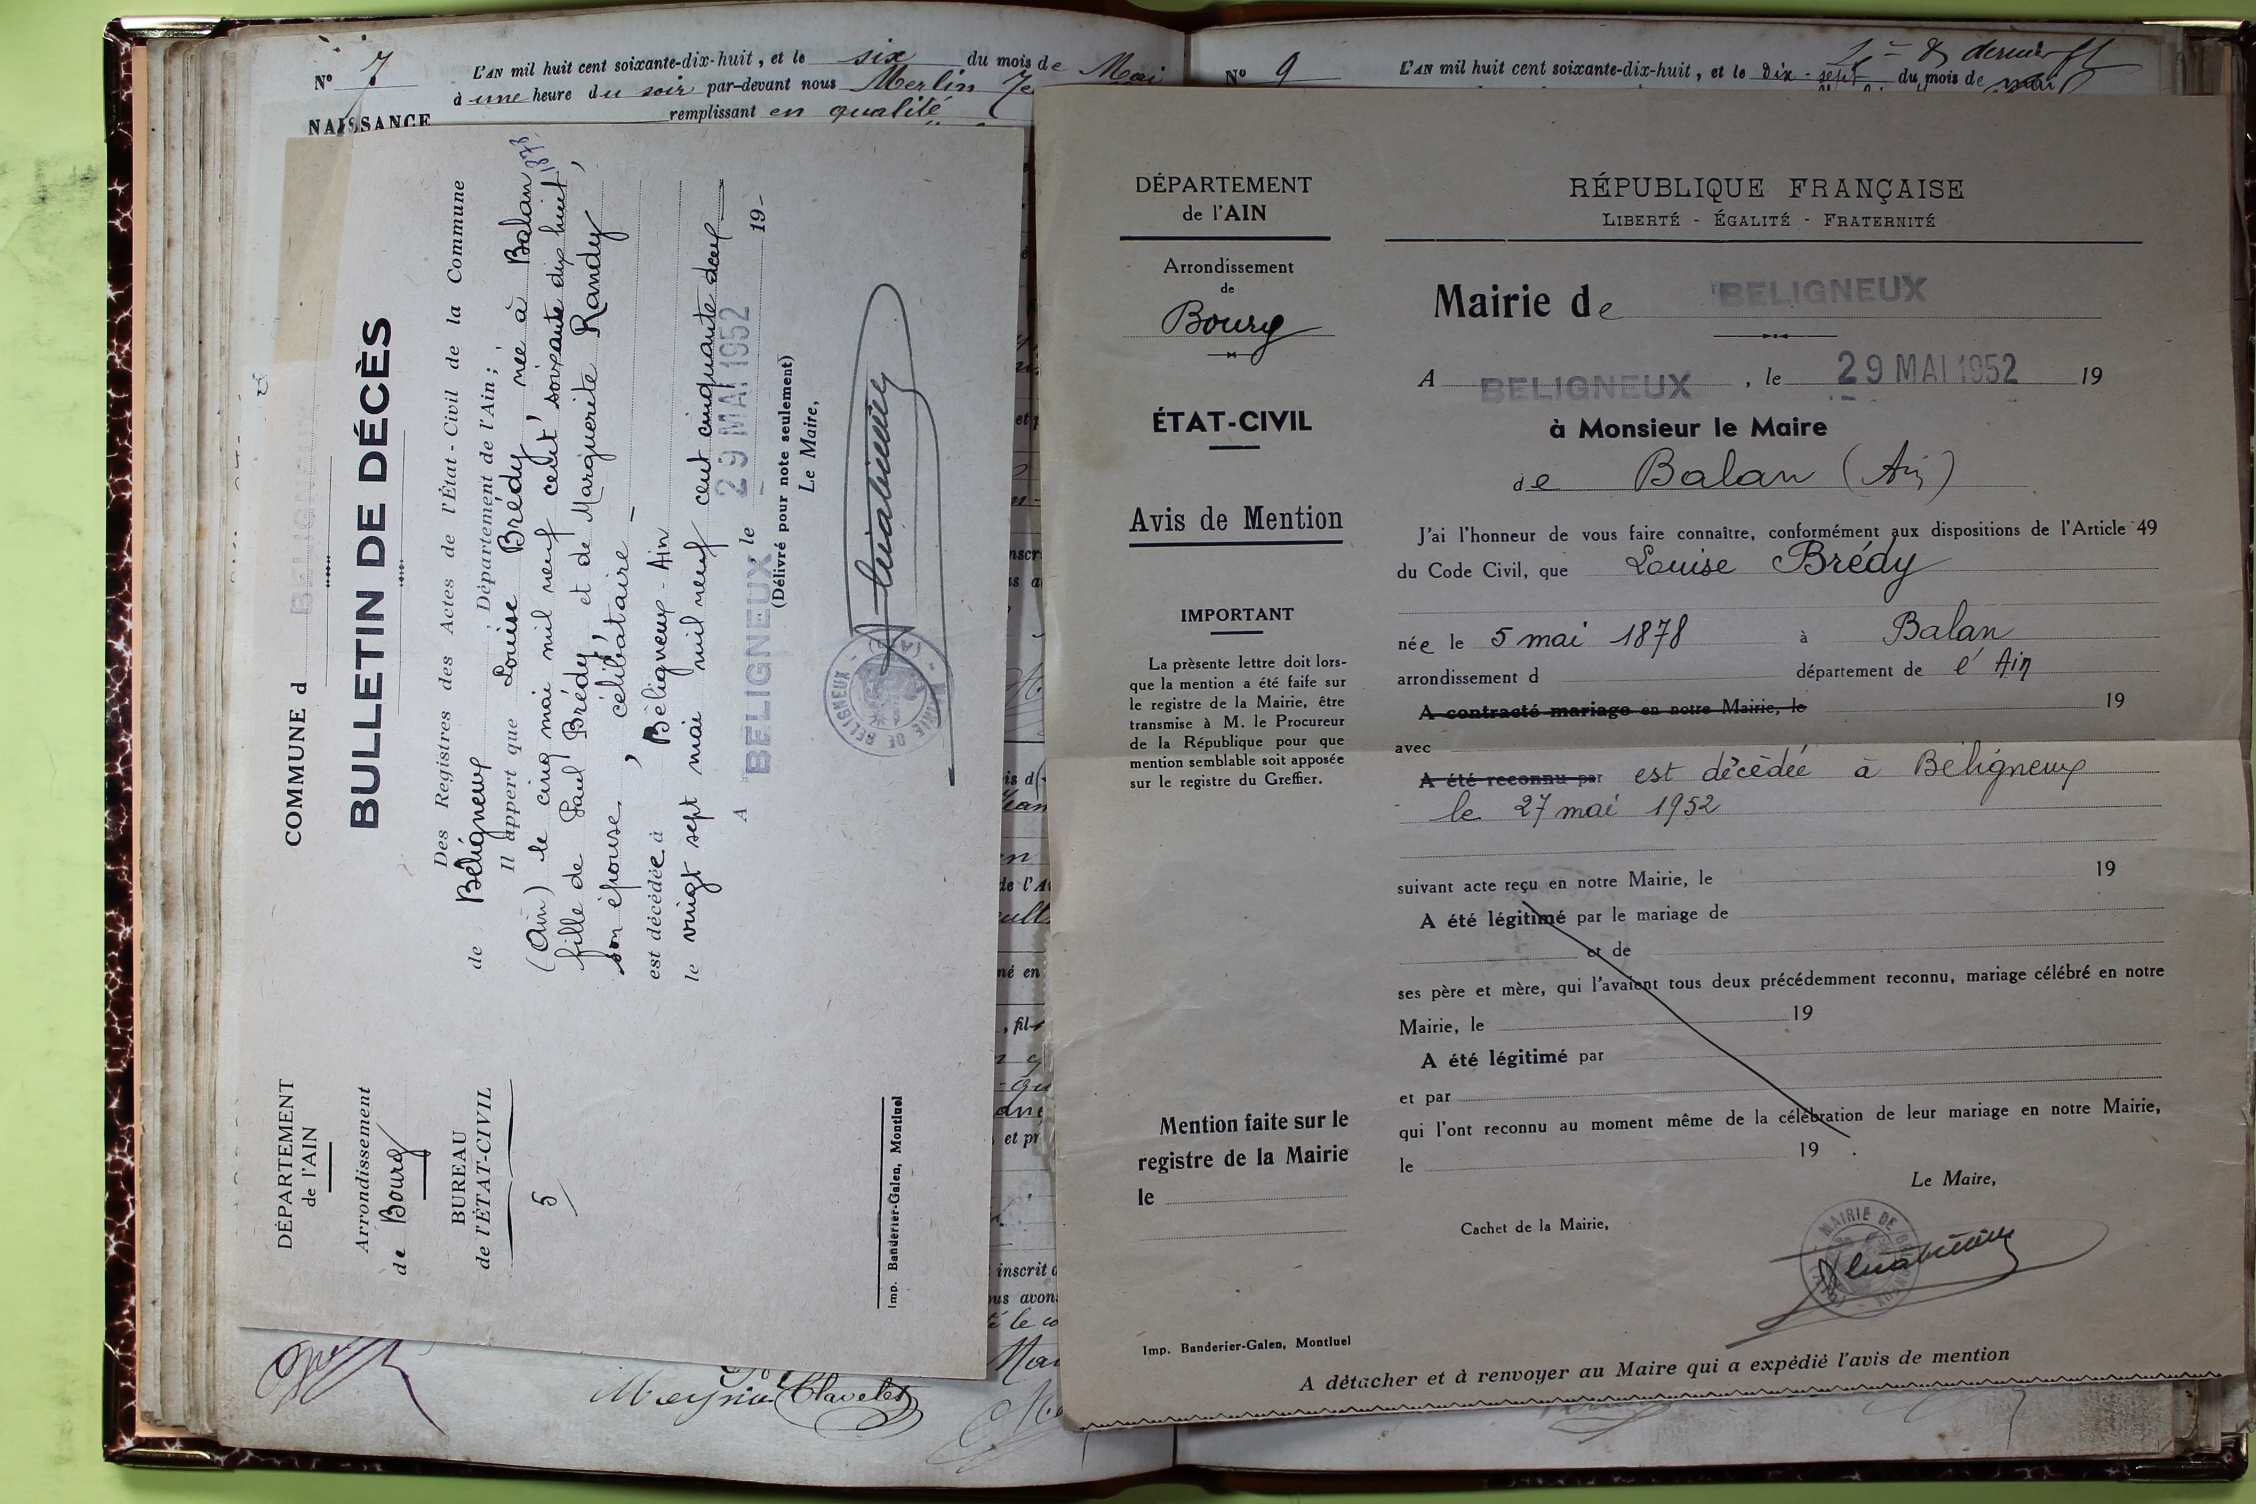 N° 7
L'AN mil huit cent soixante-dix-huit, et le six du mois de Mai
à une heure du soir par-devant nous Merlin
remplissant en qualité
NAISSANCE
N° 9
L'AN mil huit cent soixante-dix-huit, et le dix-sept du mois de mai
DÉPARTEMENT
de l'AIN
Arrondissement
de Bourg
BUREAU
de l'ÉTAT-CIVIL
5
COMMUNE d BELIGNEUX
BULLETIN DE DÉCÈS
Des Registres des Actes de l'État-Civil de la Commune
de Béligneux, Département de l'Ain;
Il appert que Louise Brédy née à Balan
(Ain) le cinq mai mil neuf cent soixante dix huit 1878
fille de Paul Brédy et de Marguerite Randy
son épouse, célibataire -
est décédée à Béligneux - Ain
le vingt sept mai mil neuf cent cinquante deux
A BELIGNEUX le 29 MAI 1952 19-
(Délivré pour note seulement)
Le Maire,
MAIRIE DE BELIGNEUX - (AIN)
Imp. Banderier-Galen, Montluel
Meynier Clavelet
DÉPARTEMENT
de l'AIN
Arrondissement
de
Bourg
ÉTAT-CIVIL
Avis de Mention
IMPORTANT
La prèsente lettre doit lors-
que la mention a été faife sur
le registre de la Mairie, être
transmise à M. le Procureur
de la République pour que
mention semblable soit apposée
sur le registre du Greffier.
Mention faite sur le
registre de la Mairie
le
Imp. Banderier-Galen, Montluel
RÉPUBLIQUE FRANÇAISE
LIBERTÉ - ÉGALITÉ - FRATERNITÉ
Mairie de BELIGNEUX
A BELIGNEUX, le 29 MAI 1952 19
à Monsieur le Maire
de Balan (Ain)
J'ai l'honneur de vous faire connaître, conformément aux dispositions de l'Article 49
du Code Civil, que Louise Brédy
née le 5 mai 1878 à Balan
arrondissement d département de l'Ain
A contracté mariage en notre Mairie, le 19
avec
A été reconnu par est décédée à Béligneux
le 27 mai 1952
suivant acte reçu en notre Mairie, le 19
A été légitimé par le mariage de
et de
ses père et mère, qui l'avaient tous deux précédemment reconnu, mariage célébré en notre
Mairie, le 19
A été légitimé par
et par
qui l'ont reconnu au moment même de la célébration de leur mariage en notre Mairie,
le 19
Le Maire,
Cachet de la Mairie,
MAIRIE DE BELIGNEUX (AIN)
A détacher et à renvoyer au Maire qui a expédié l'avis de mention